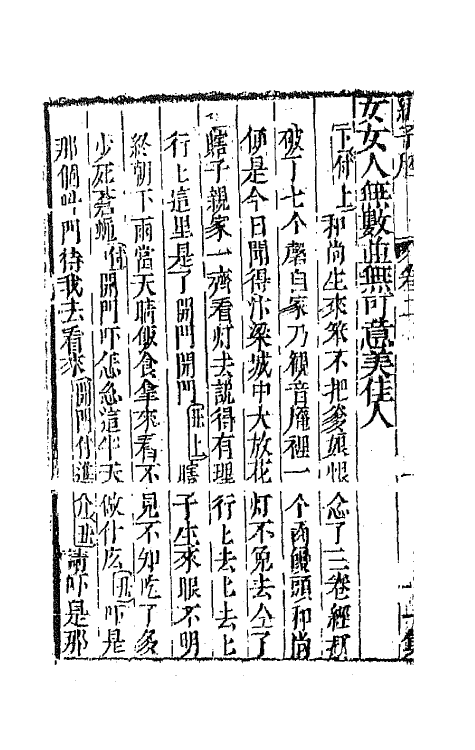 女女人無數並無可意美佳人
下付上和尚生來笨不把爹娘恨念了三卷經打
破了七个磬自家乃觀音庵裡一个西饅頭和尚
便是今日聞得汴梁城中大放花灯不免去仝了
瞎子親家一齊看灯去說得有理行上去上去上
行上這里是了開門開門丑上瞎子生來眼不明
終朝下雨當天晴飯食拿來看不見不如吃了多
少死蒼蠅付開門吓怎怎這半天做什庅丑吓是
那個呌門待我去看來開門付進介丑請吓是那